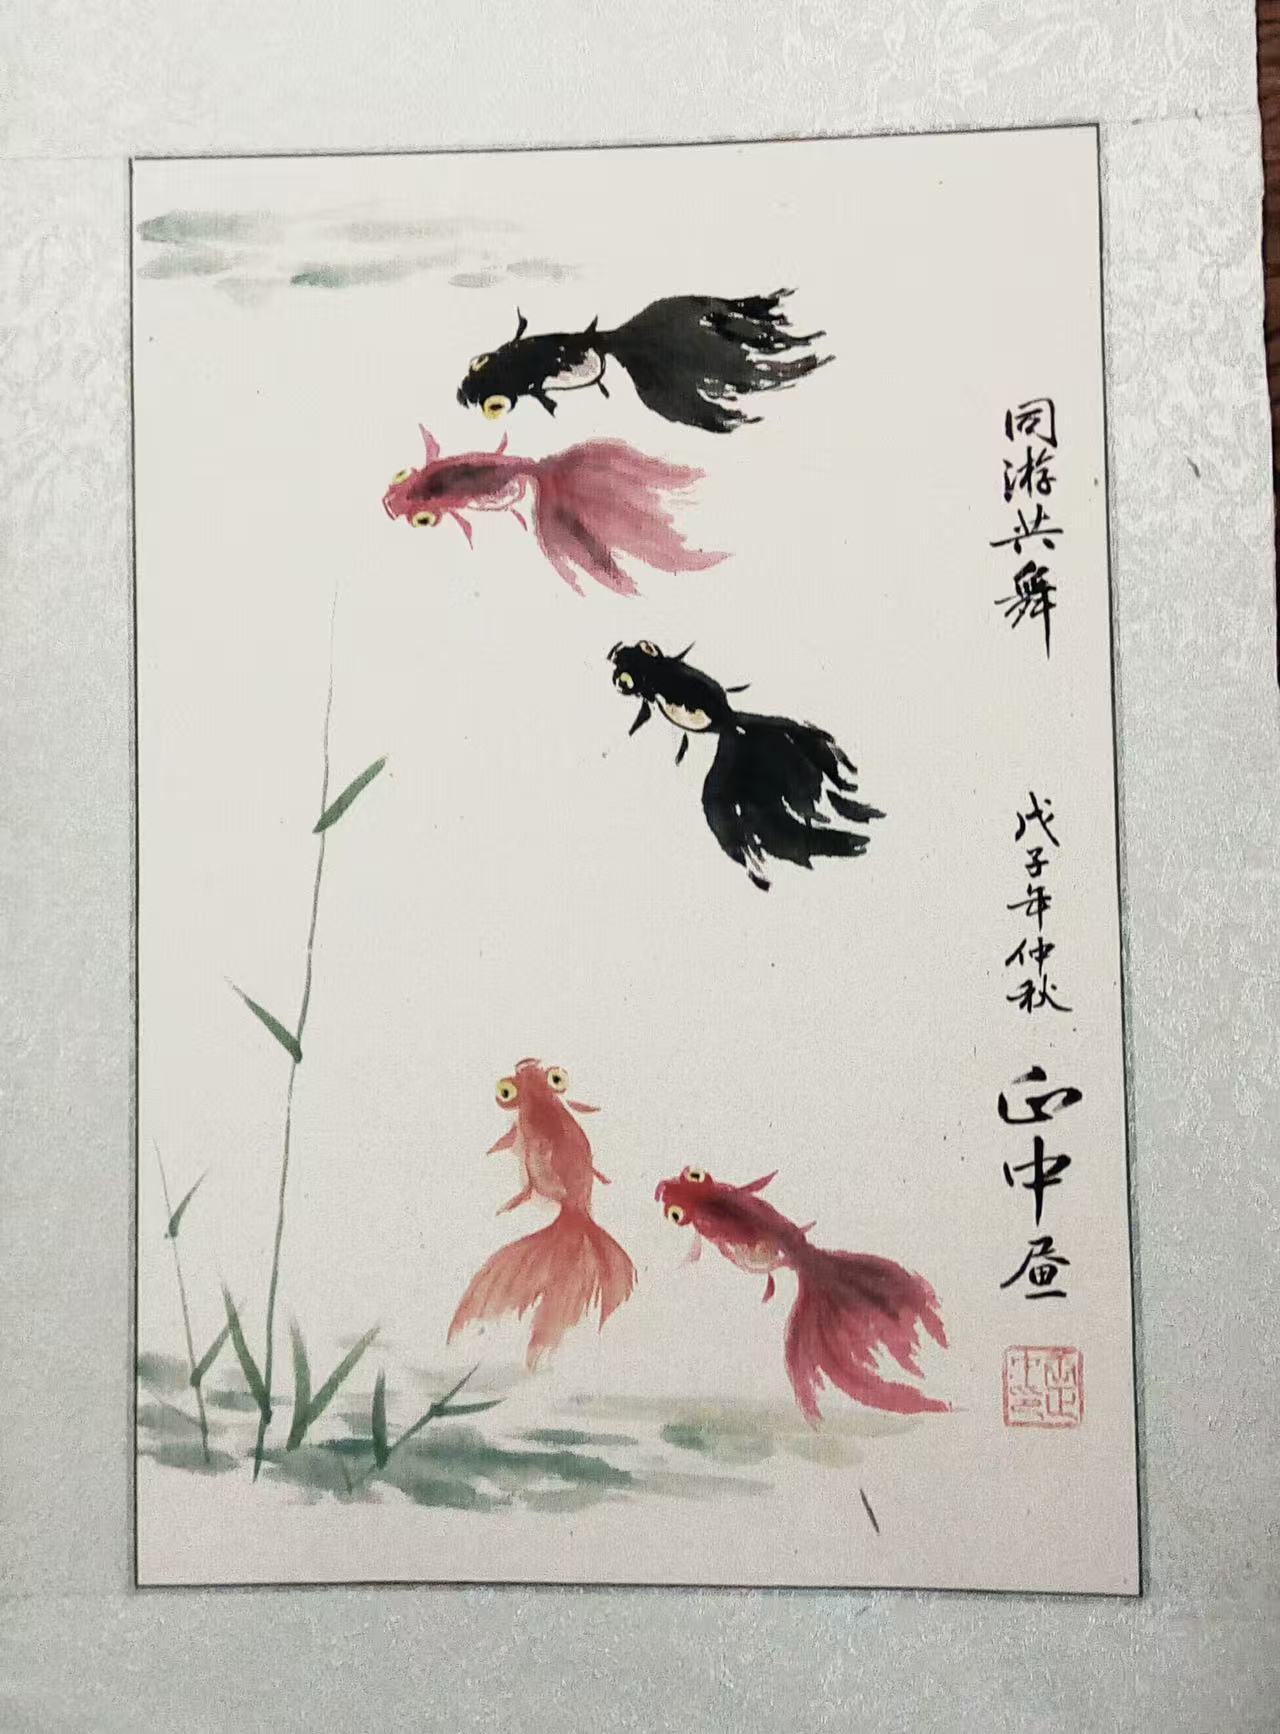 同游共舞
戊子年仲秋
正中画